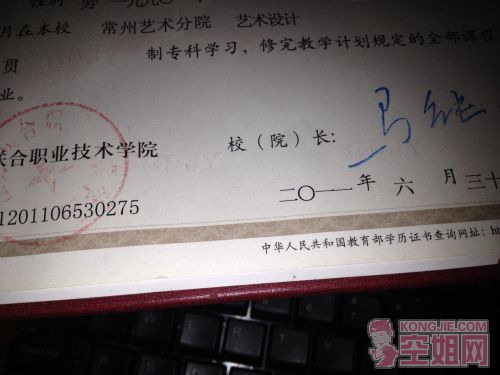 性别 男 一九九〇
月在本校 常州艺术分院 艺术设计
贯 制专科学习，修完教学计划规定的全部课程
业。
联合职业技术学院 校（院）长：
1201106530275 二〇一一年 六 月 三十
中华人民共和国教育部学历证书查询网址：
KONGJIE.COM
空姐网